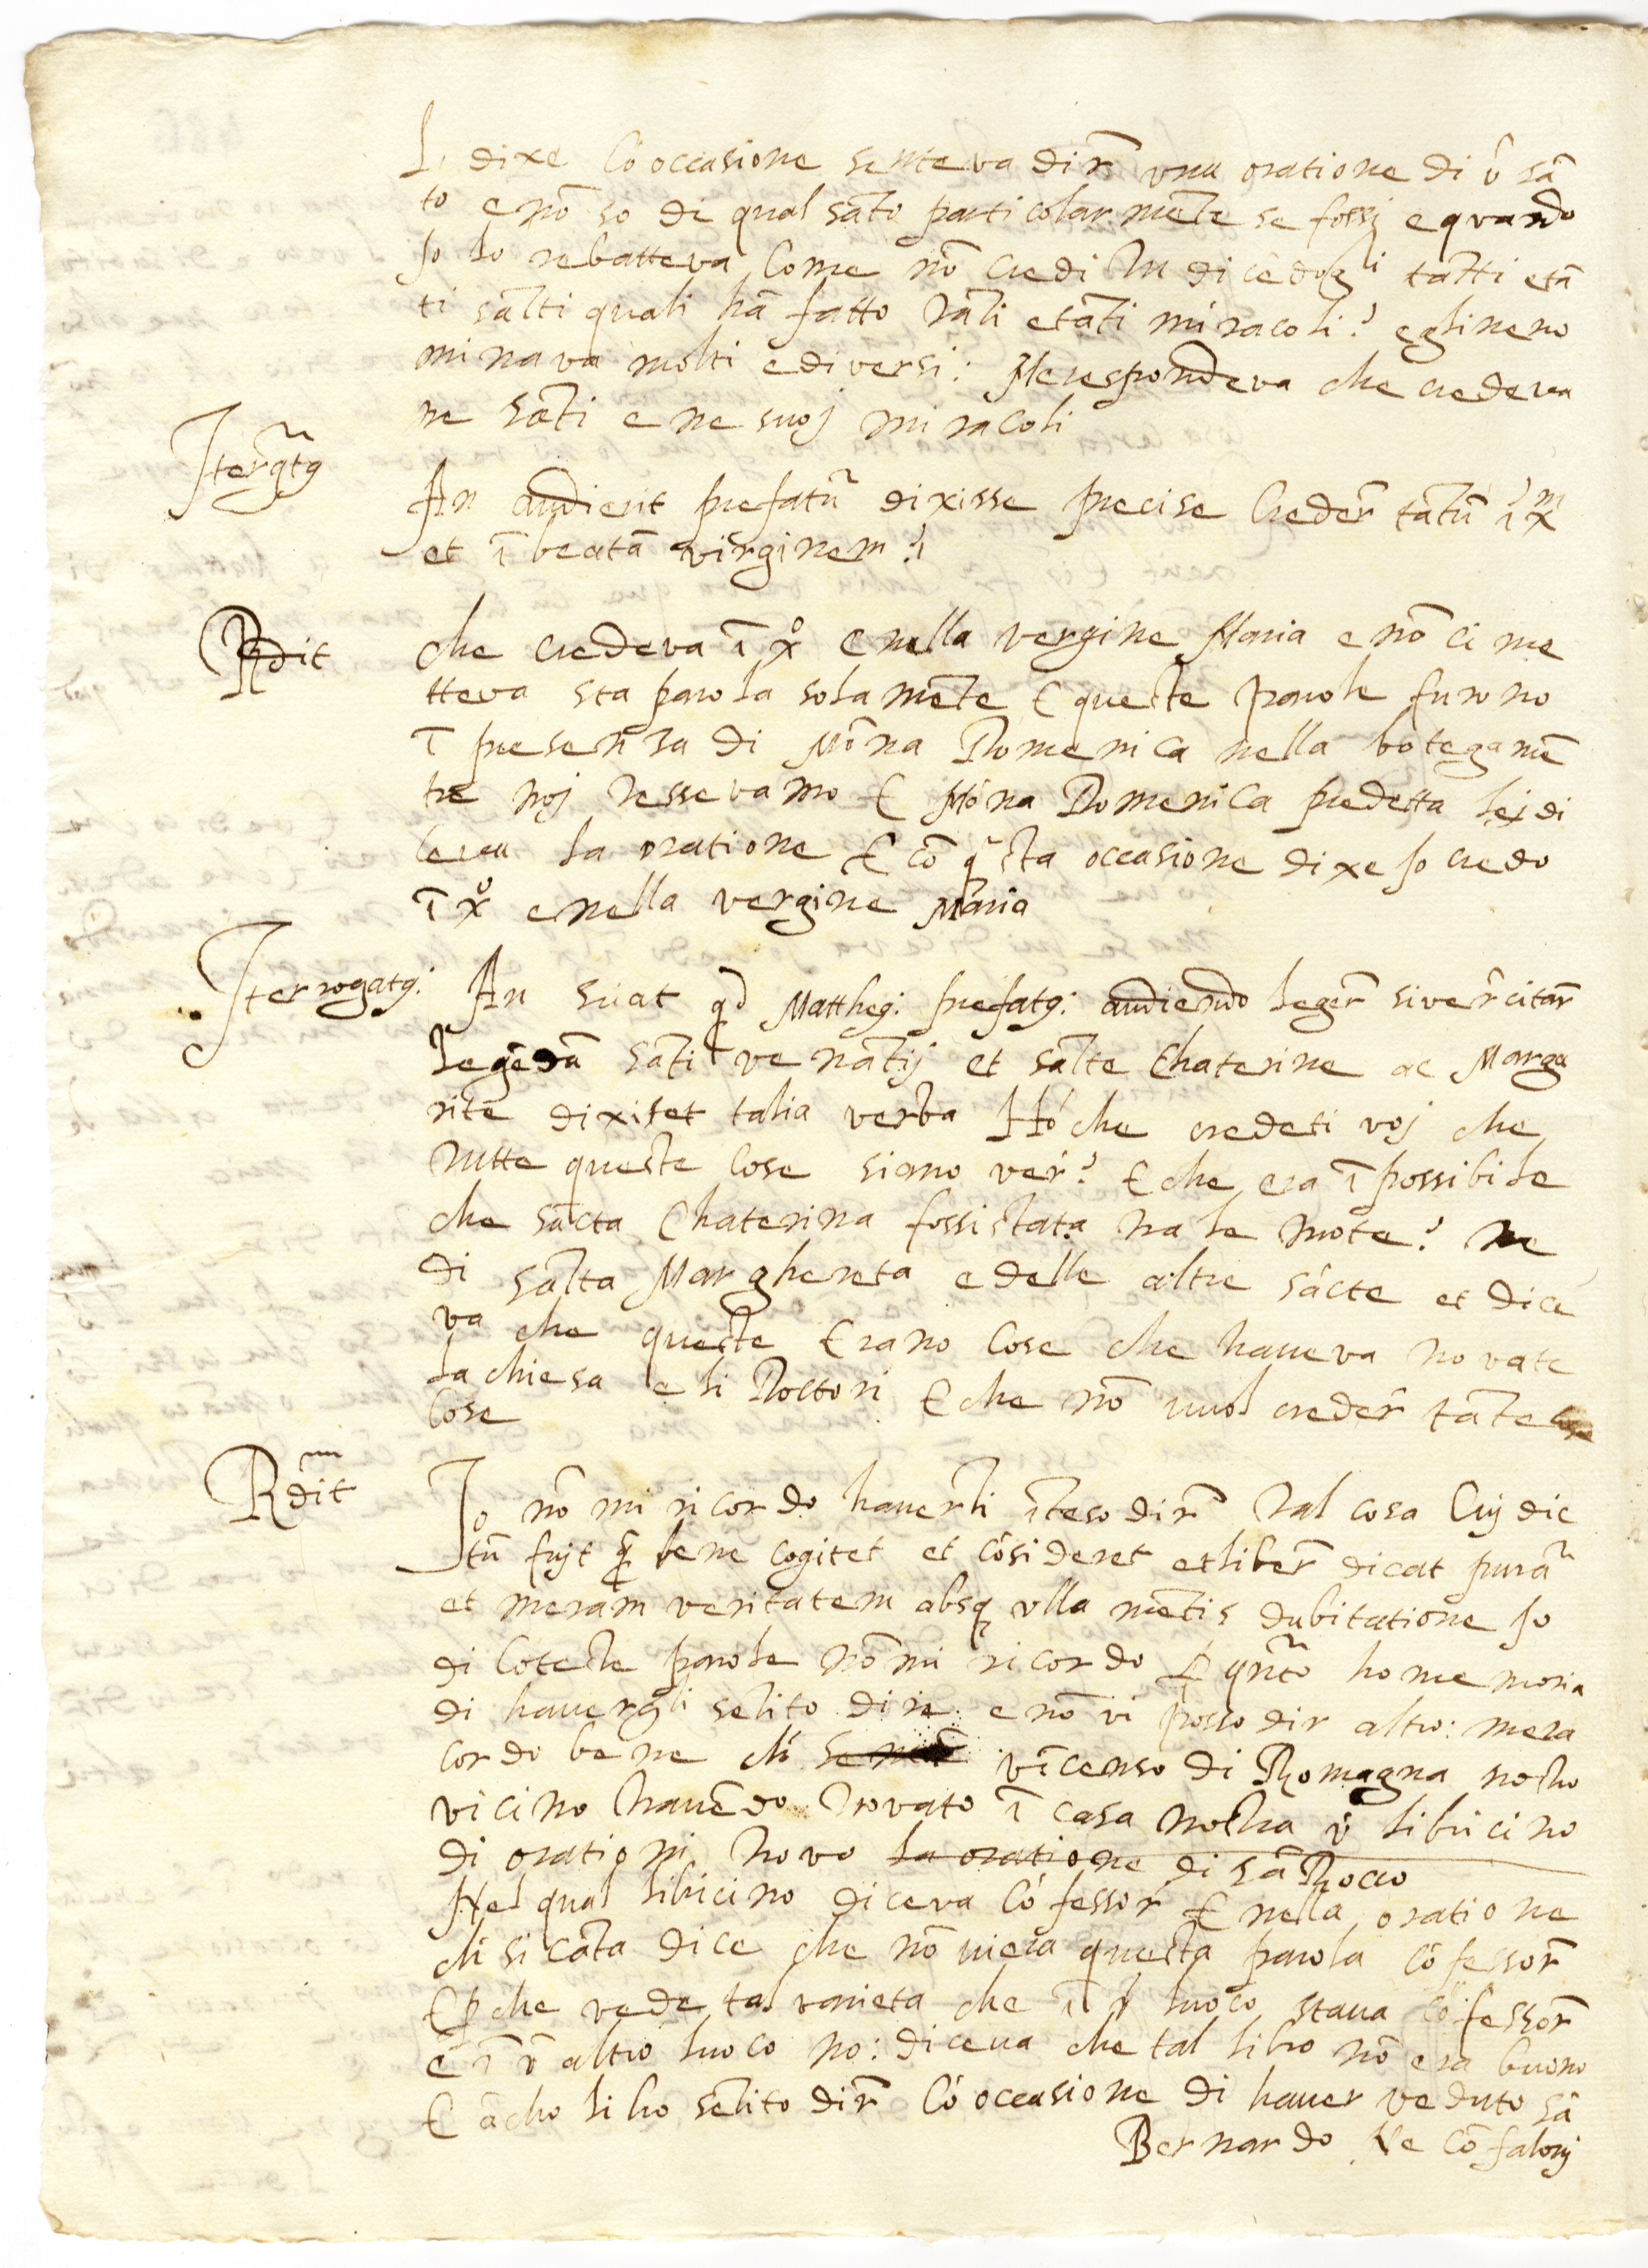 L dixe cõ occasione senteva dir̃ una oratione di ũ sã
to e nõ so di qual sãto particolarmẽte se fossj e quando
Jo lo rebatteva Come nõ credi tu dicẽdogli tãti etã
ti sãti quali hã fatto tãti etãti miracoli? e gli neno
minava molti e diversi: Me respondeva che credeva
ne sãti e ne suoj miracoli
Iterrogtg
An audierit prefatũ dixisse precise Creder̃ tãtũ ĩ xm
et ĩ beatã virginem?
Rdit
che credeva ĩ xo e nella vergine Maria e nõ ci me
tteva sta parola solamẽte E queste parole furono
ĩ presenza di Mõna Domenica nella botega mẽ
tre noj tessevamo E Mõna Domenica predetta lej di
ceva la oratione E cõ qsta occasione dixe Jo credo
ĩ xo e nella vergine Maria
Iterrogatg:
An sciat qd Mattheg: prefatg: audiendo leger̃ sive r̃citar̃
legẽdã sãti venãtij et sãte Chaterine ac Marga
rite dixiset talia verba Hó che credeti voj che
tutte queste cose siano ver̃? E che era ĩpossibile
che sãcta Chaterina fossi stata tra le rote? ne
di sãta Marghereta e delle altre sãcte et dice
va che queste Erano cose che haveva novate
la chiesa e li Dottori E che nõ vuol creder̃ tãte
cose
Rdit
Jo nõ mi ricordo haverli ĩteso dir̃ tal cosa Cuj dic
tũ fujt q bene cogitet et cõsideret et liber̃ dicat purã
et meram veritatem absq ulla mẽtis dubitatione Jo
di coteste parole nõ mi ricordo p qũto ho memoria
di havergli sẽtito dire e nõ vi posso dir altro: me ra
cordo bene ch vĩcenso di Romagna nostro
vicino havẽdo trovato ĩ casa nostra ũ libricino
di orationi trovo la oratione di sã Rocco
Nel qual libricino diceva cõfessor̃ E nella oratione
ch si cãta dice che nõ viera questa parola cõfessor̃
E pche vede tal varieta che ĩ ũ luoco stava cõfessor̃
e ĩ ũ altro luoco no: diceva che tal libro nõ era buono
E ãcho li ho sẽtito dir̃ cõ occasione di haver veduto sã
Bernardo Ne cõfalonj